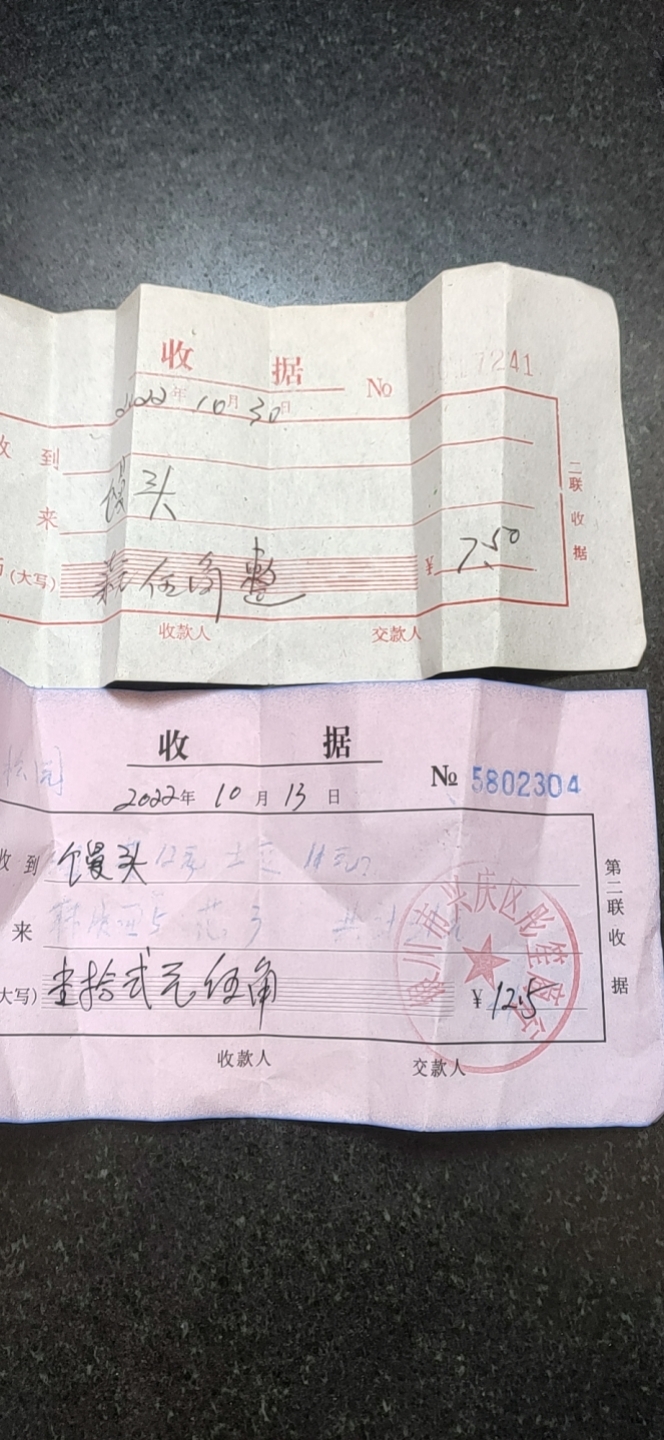 收 据
No 7241
2022年 10月 30日
收 到
来 馒头
(大写) 柒元伍角整 ¥ 7.50
收款人 交款人
二联收据
收 据
№ 5802304
2022年 10月 13日
收到 馒头
来
大写) 壹拾贰元伍角 ¥ 12.5
收款人 交款人
第二联收据
银川市兴庆区